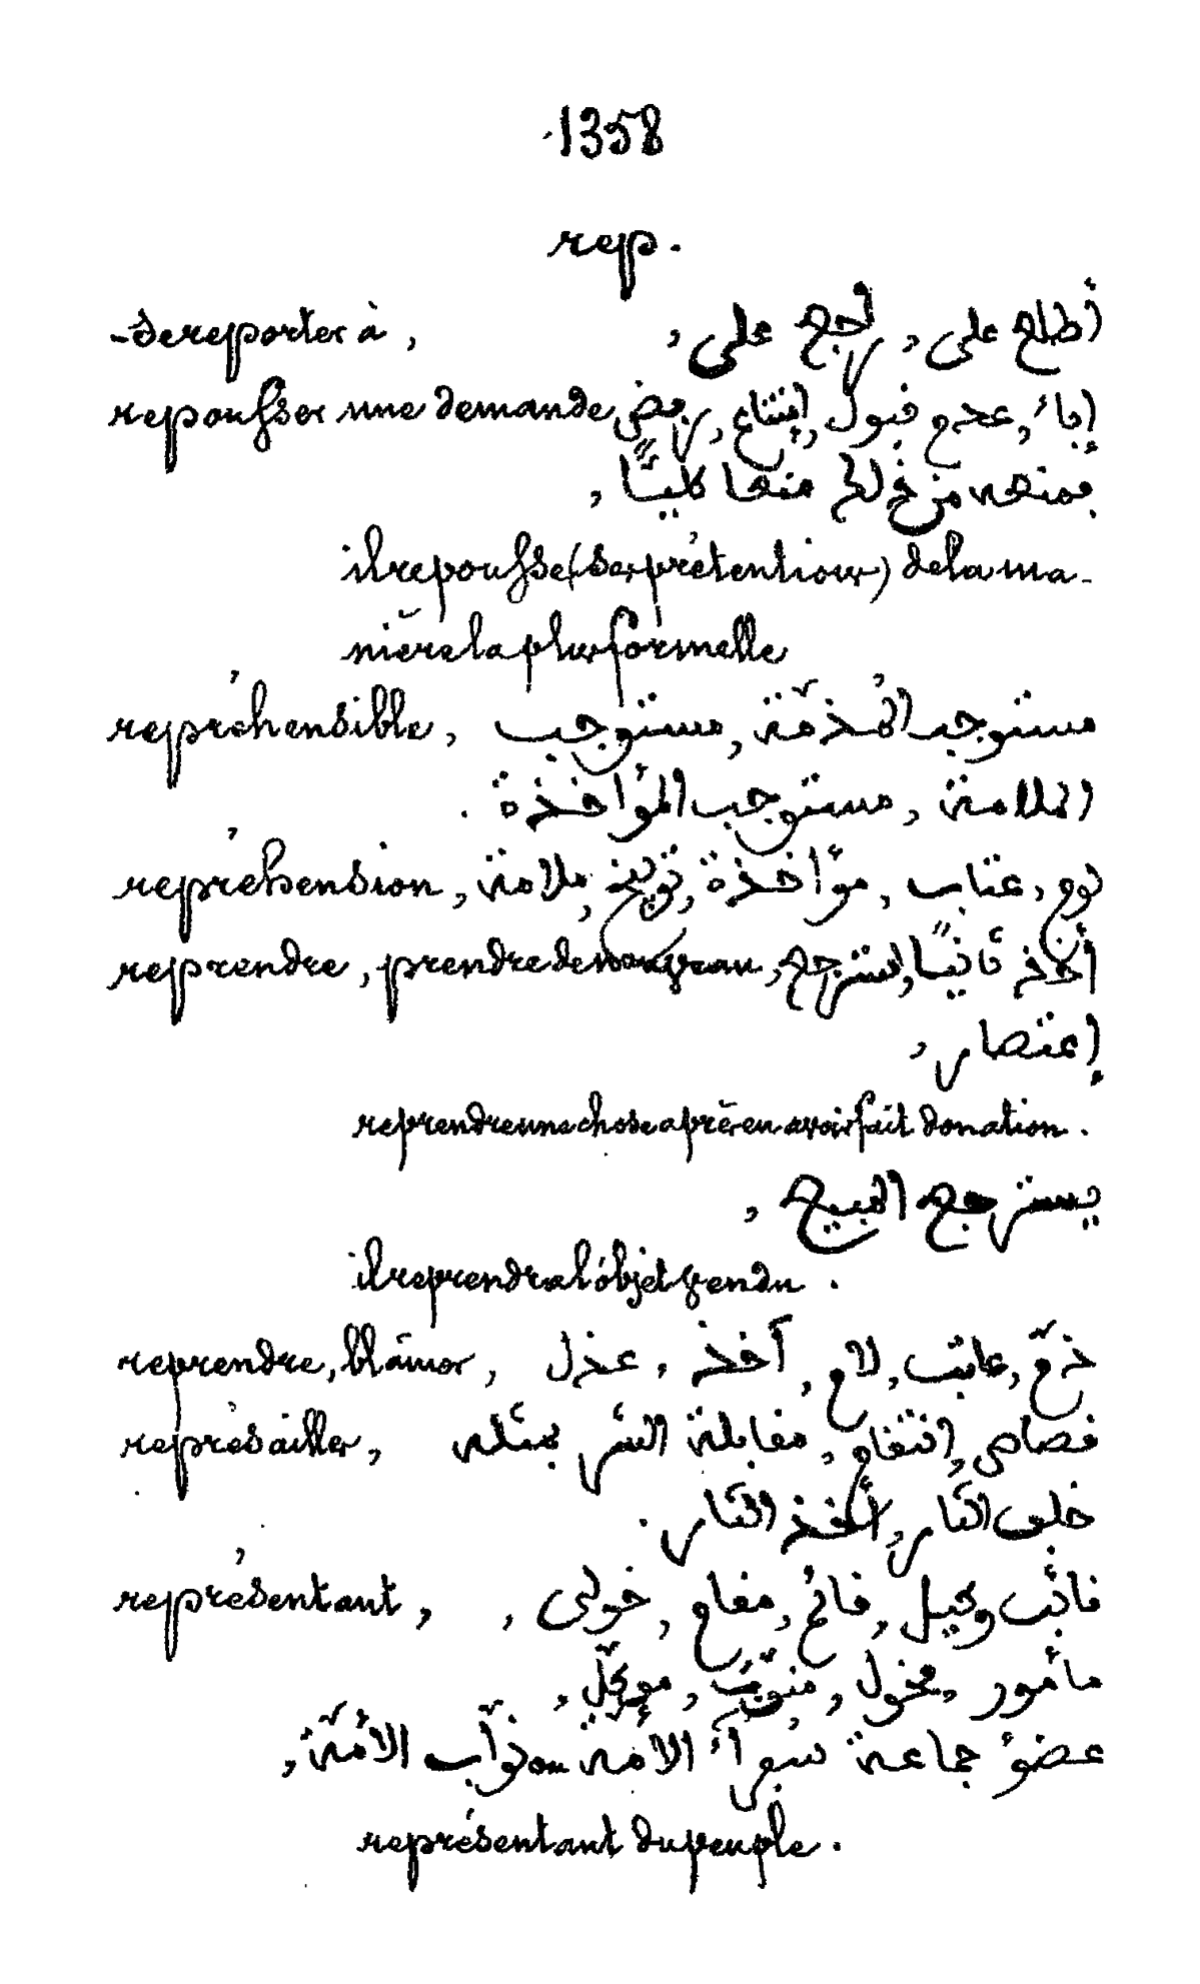 1358
rep.
- se reporter à, أطلع على, راجع على,
repousser une demande, إباء, عدم قبول, إمتناع, رفض
منعا كليًّا,
il repousse (ses prétentions) de la ma-
nière la plus formelle
répréhensible, مستوجب المذمّة, مستوجب
الملامة, مستوجب المؤاخذة.
répréhension, لوم, عتاب, مؤاخذة, توبيخ, ملامة
reprendre, prendre de nouveau, أخذ ثانيًا, استرجع,
إعتصار,
reprendre une chose après en avoir fait donation.
يسترجع المبيع,
il reprendra l'objet vendu.
reprendre, blâmer, ذمّ, عاتب, لام, آخذ, عذل
représailles, قصاص, إنتقام, مقابلة الشر بمثله
الثار, أخذ الثار.
représentant, نائب وكيل, قائم, مقام,
مأمور, مخول, منوّب, موكّل,
عضو جماعة الأمة ou نوّاب الأمّة,
représentant du peuple.